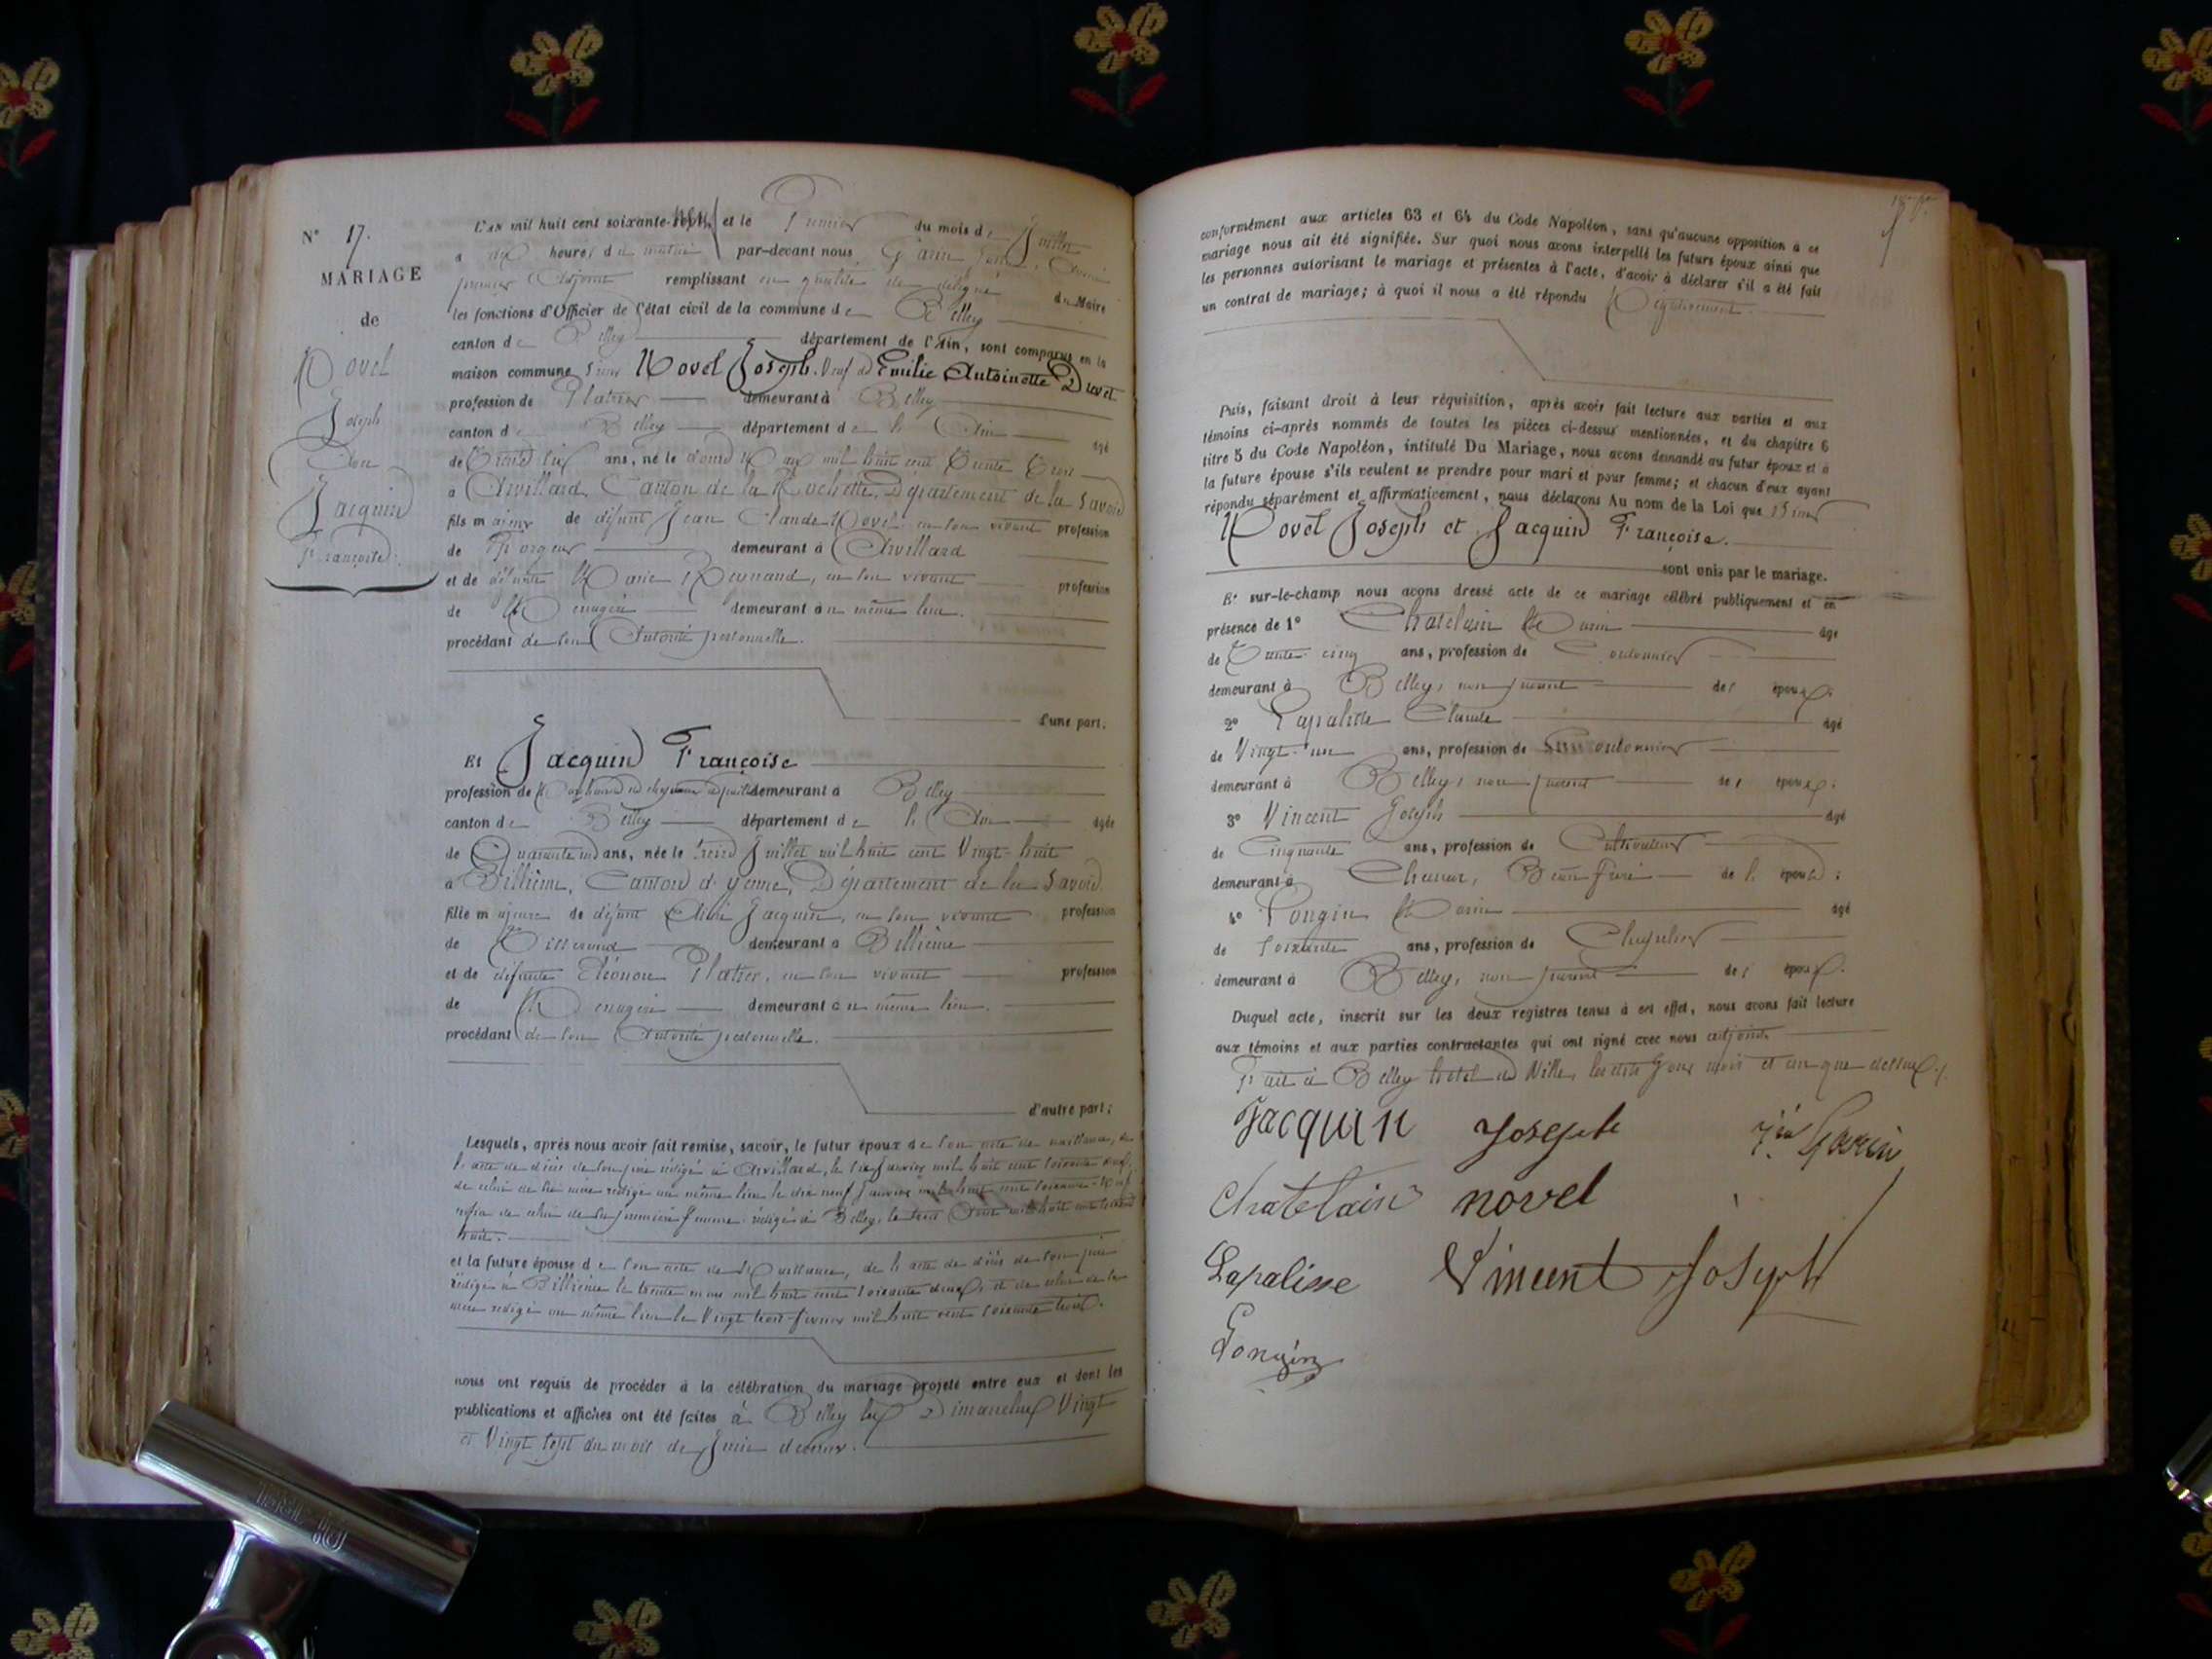 N° 17.
MARIAGE
de
Novel
Joseph
Jacquin
Françoise.
L'an mil huit cent soixante-neuf et le Premier du mois de Juillet
à dix heures du matin par-devant nous Garin
premier Adjoint remplissant en qualité de délégué du Maire
les fonctions d'Officier de l'état civil de la commune de Belley
canton de Belley département de l'Ain, sont comparus en la
maison commune Sieur Novel Joseph. Veuf de Emilie Antoinette Drevet
profession de Platrier demeurant à Belley
canton de Belley département de l'Ain âgé
de Trente six ans, né le Mai mil huit cent Trente Trois
à Arvillard, Canton de la Rochette, Département de la Savoie
fils majeur de défunt Jean Claude Novel en son vivant profession
de Forgeur demeurant à Arvillard
et de défunte Marie Reynaud, en son vivant profession
de Ménagère demeurant au même lieu.
procédant de son Autorité personnelle.
d'une part.
Et Jacquin Françoise
profession de demeurant à Belley
canton de Belley département de l'Ain âgée
de Quarante ans, née le treize Juillet mil huit cent Vingt-huit
à Billième, Canton d'Yenne, Département de la Savoie.
fille majeure de défunt Aimé Jacquin, en son vivant profession
de Tisserand demeurant à Billième
et de défunte Eléonore Platier, en son vivant profession
de Ménagère demeurant au même lieu.
procédant de son Autorité personnelle.
d'autre part;
Lesquels, après nous avoir fait remise, savoir, le futur époux de son acte de naissance, de
l'acte de décès de son père rédigé à Arvillard, le six Janvier mil huit cent soixante neuf,
de celui de sa mère rédigé au même lieu le dix neuf Janvier mil huit cent soixante-neuf
enfin de celui de sa première femme rédigé à Belley, le trois Août mil huit cent soixante
huit.
et la future épouse de son acte de Naissance, de l'acte de décès de son père
rédigé à Billième le trente mars mil huit cent soixante deux, et de celui de sa
mère rédigé au même lieu le Vingt trois février mil huit cent soixante trois.
nous ont requis de procéder à la célébration du mariage projeté entre eux et dont les
publications et affiches ont été faites à Belley les Dimanches Vingt
et Vingt sept du mois de Juin dernier.
conformément aux articles 63 et 64 du Code Napoléon, sans qu'aucune opposition à ce
mariage nous ait été signifiée. Sur quoi nous avons interpellé les futurs époux ainsi que
les personnes autorisant le mariage et présentes à l'acte, d'avoir à déclarer s'il a été fait
un contrat de mariage; à quoi il nous a été répondu Négativement.
Puis, faisant droit à leur réquisition, après avoir fait lecture aux parties et aux
témoins ci-après nommés de toutes les pièces ci-dessus mentionnées, et du chapitre 6
titre 5 du Code Napoléon, intitulé Du Mariage, nous avons demandé au futur époux et à
la future épouse s'ils veulent se prendre pour mari et pour femme; et chacun d'eux ayant
répondu séparément et affirmativement, nous déclarons Au nom de la Loi que Sieur
Novel Joseph et Jacquin Françoise.
sont unis par le mariage.
Et sur-le-champ nous avons dressé acte de ce mariage célébré publiquement et en
présence de 1° Chatelain Marin âgé
de Trente cinq ans, profession de Cordonnier
demeurant à Belley, non parent des époux;
2° Lapalisse Claude âgé
de Vingt-un ans, profession de Cordonnier
demeurant à Belley, non parent des époux;
3° Vincent Joseph âgé
de Cinquante ans, profession de Cultivateur
demeurant à Beau frère de l'épouse;
4° Longin Marin âgé
de soixante ans, profession de Chapelier
demeurant à Belley, non parent des époux.
Duquel acte, inscrit sur les deux registres tenus à cet effet, nous avons fait lecture
aux témoins et aux parties contractantes qui ont signé avec nous adjoint.
Fait à Belley hotel de Ville, les dits Jour mois et an que dessus./.
Jacquin Joseph Garin
Chatelain novel
Lapalisse Vincent Joseph
Longin